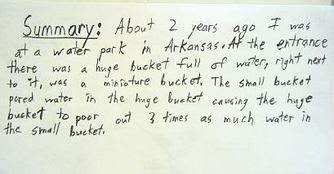 Summary: About 2 years ago I was
at a water park in Arkansas. At the entrance
there was a huge bucket full of water, right next
to it, was a miniature bucket. The small bucket
pored water in the huge bucket causing the huge
bucket to poor out 3 times as much water in
the small bucket.